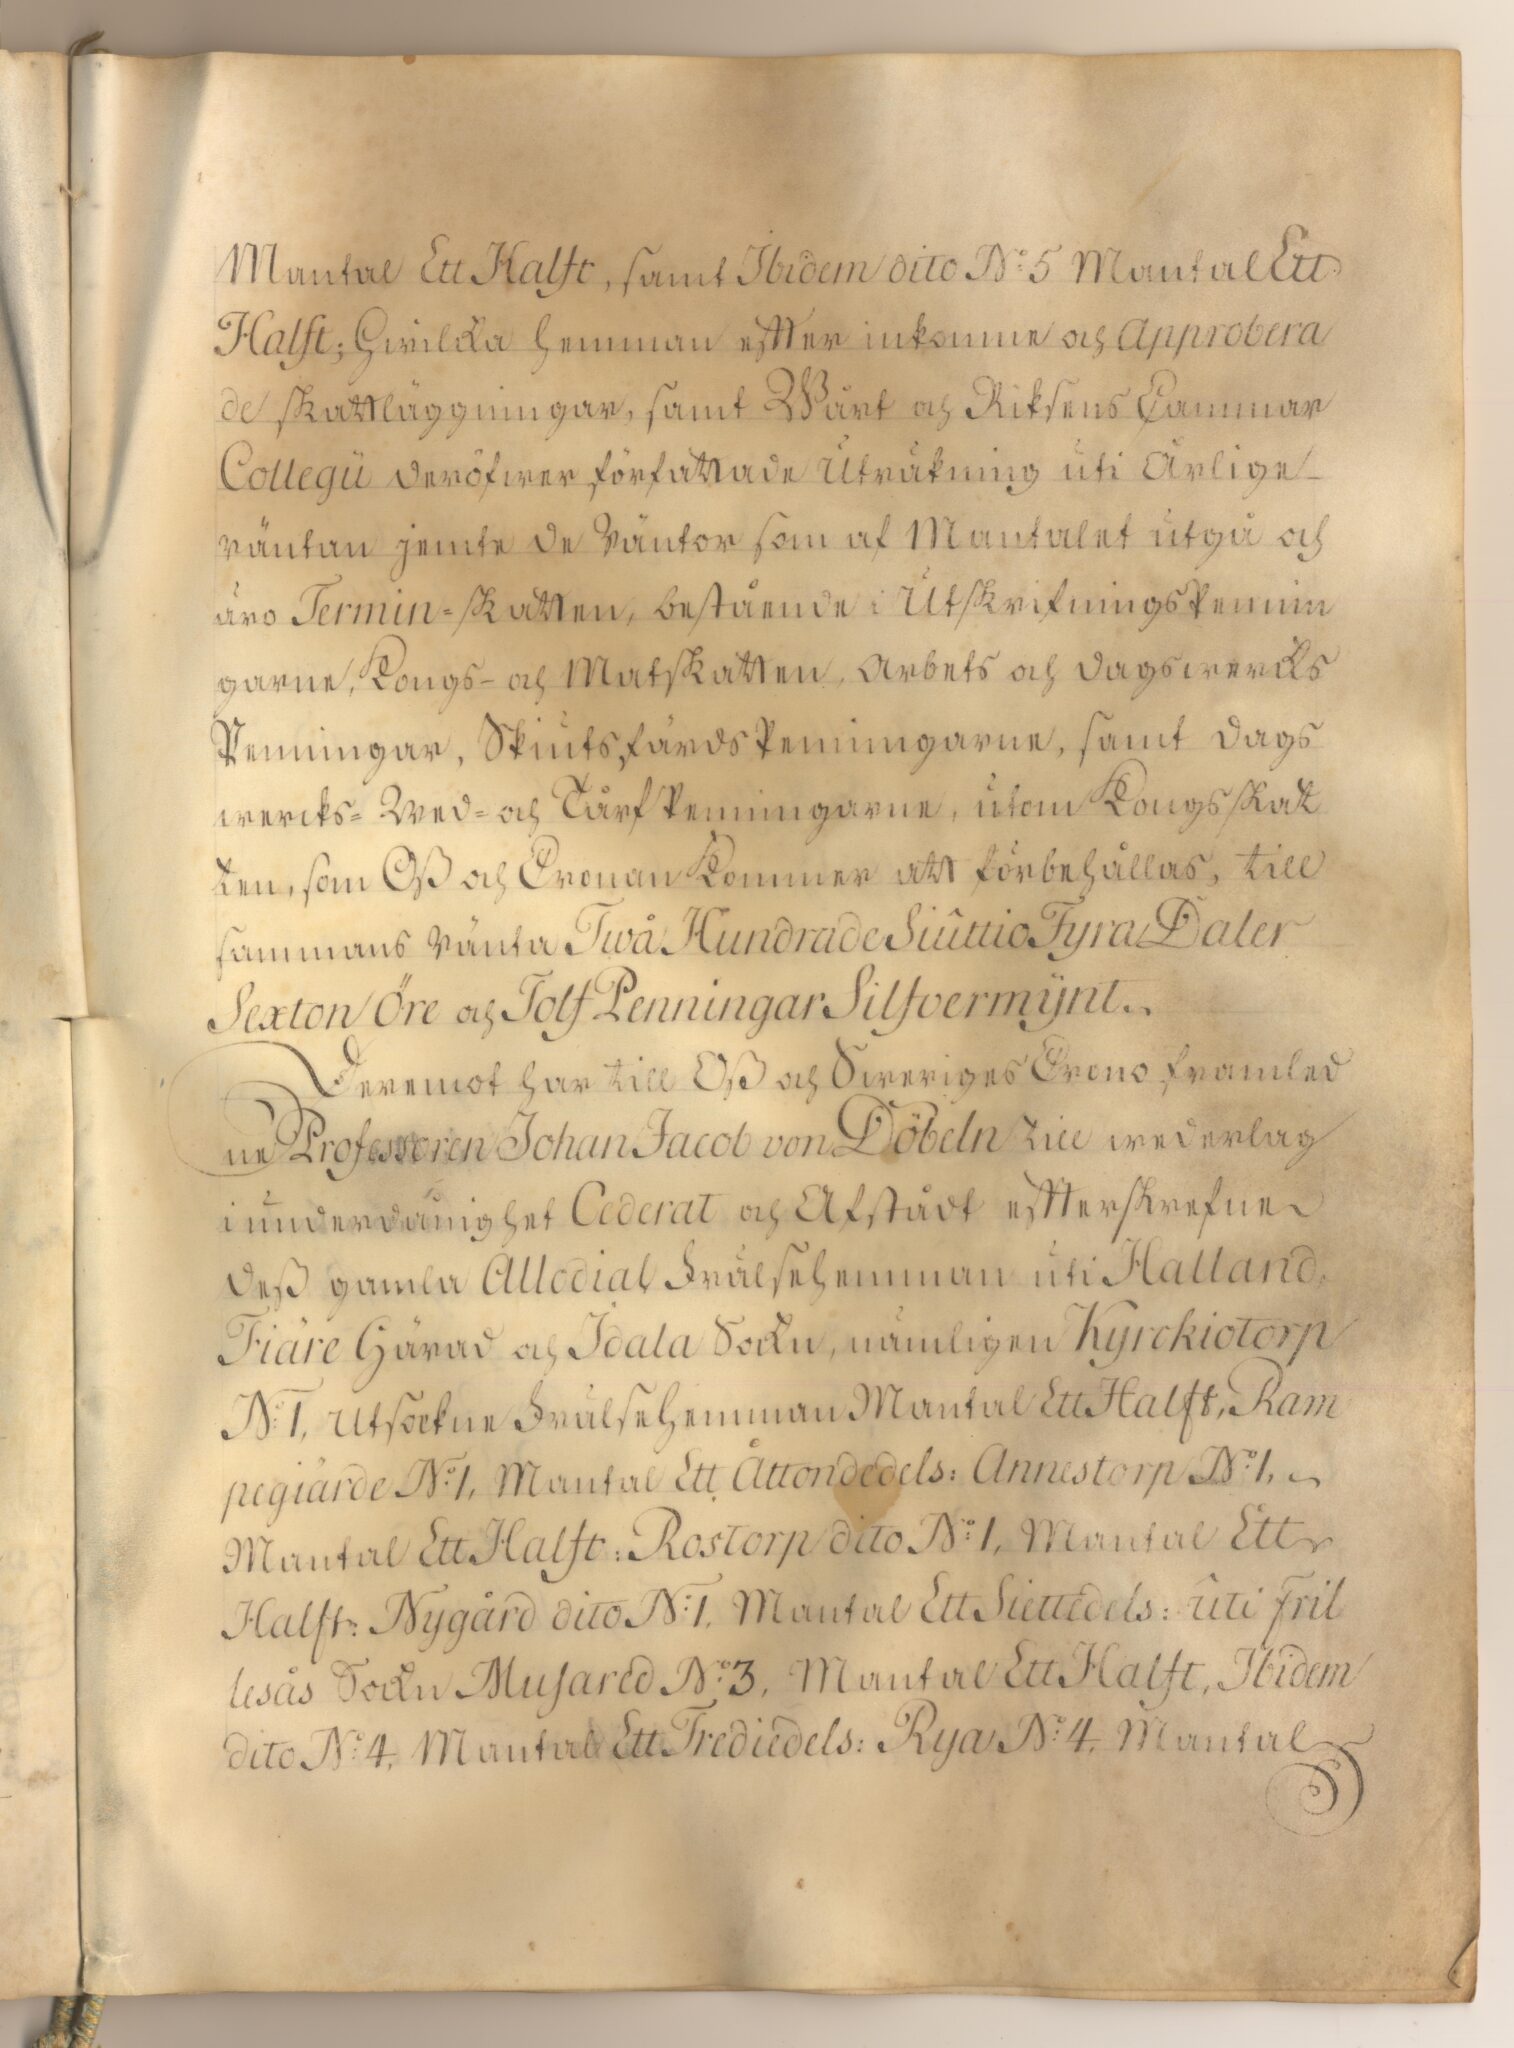 Mantal Ett Halft, samt Ibidem dito N:o 5 Mantal Ett
Halft; Hwilcka hemman efter inkomne och Approbera
de skattläggningar, samt Wårt och Riksens Cammar
Collegii deröfwer författade Uträkning uti Årlige
räntan jemte de Räntor som af Mantalet utgå och
äro Termin=skatten, bestående i Utskrifningspennin
garne, Kongs- och Matskatten, Arbets och dagswercks
Penningar, Skiutsfärds Penningarne, samt dags
wercks= Wed= och Tårf Penningarne, utom Kongsskat
ten, som Oß och Cronan kommer att förbehållas, till
sammans ränta Twå Hundrade Siuttio Fyra Daler
Sexton Öre och Tolf Penningar Silfvermÿnt.
Deremot har till Oß och Sweriges Crono framled
ne Professoren Johan Jacob von Döbeln till wederlag
i underdånighet Cederat och Afstådt efterskrefne
deß gamla Allodial Frälsehemman uti Halland,
Fiäre Härad och Idala Sockn, nämligen Kyrckiotorp
N:o 1, Utsockne Frälsehemman Mantal Ett Halft, Ram
pegiärde N:o 1, Mantal Ett Åttondedels: Annestorp N:o 1,
Mantal Ett Halft: Rostorp dito N:o 1, Mantal Ett
Halft: Nygård dito N:o 1, Mantal Ett Siettedels: uti Fril
lesås Sockn Musared N:o 3, Mantal Ett Halft, Ibidem
dito N:o 4, Mantal Ett Trediedels: Rya N:o 4, Mantal